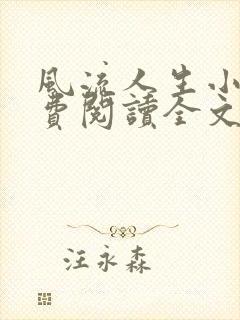 風流人生小
費閱讀全文
汪永森